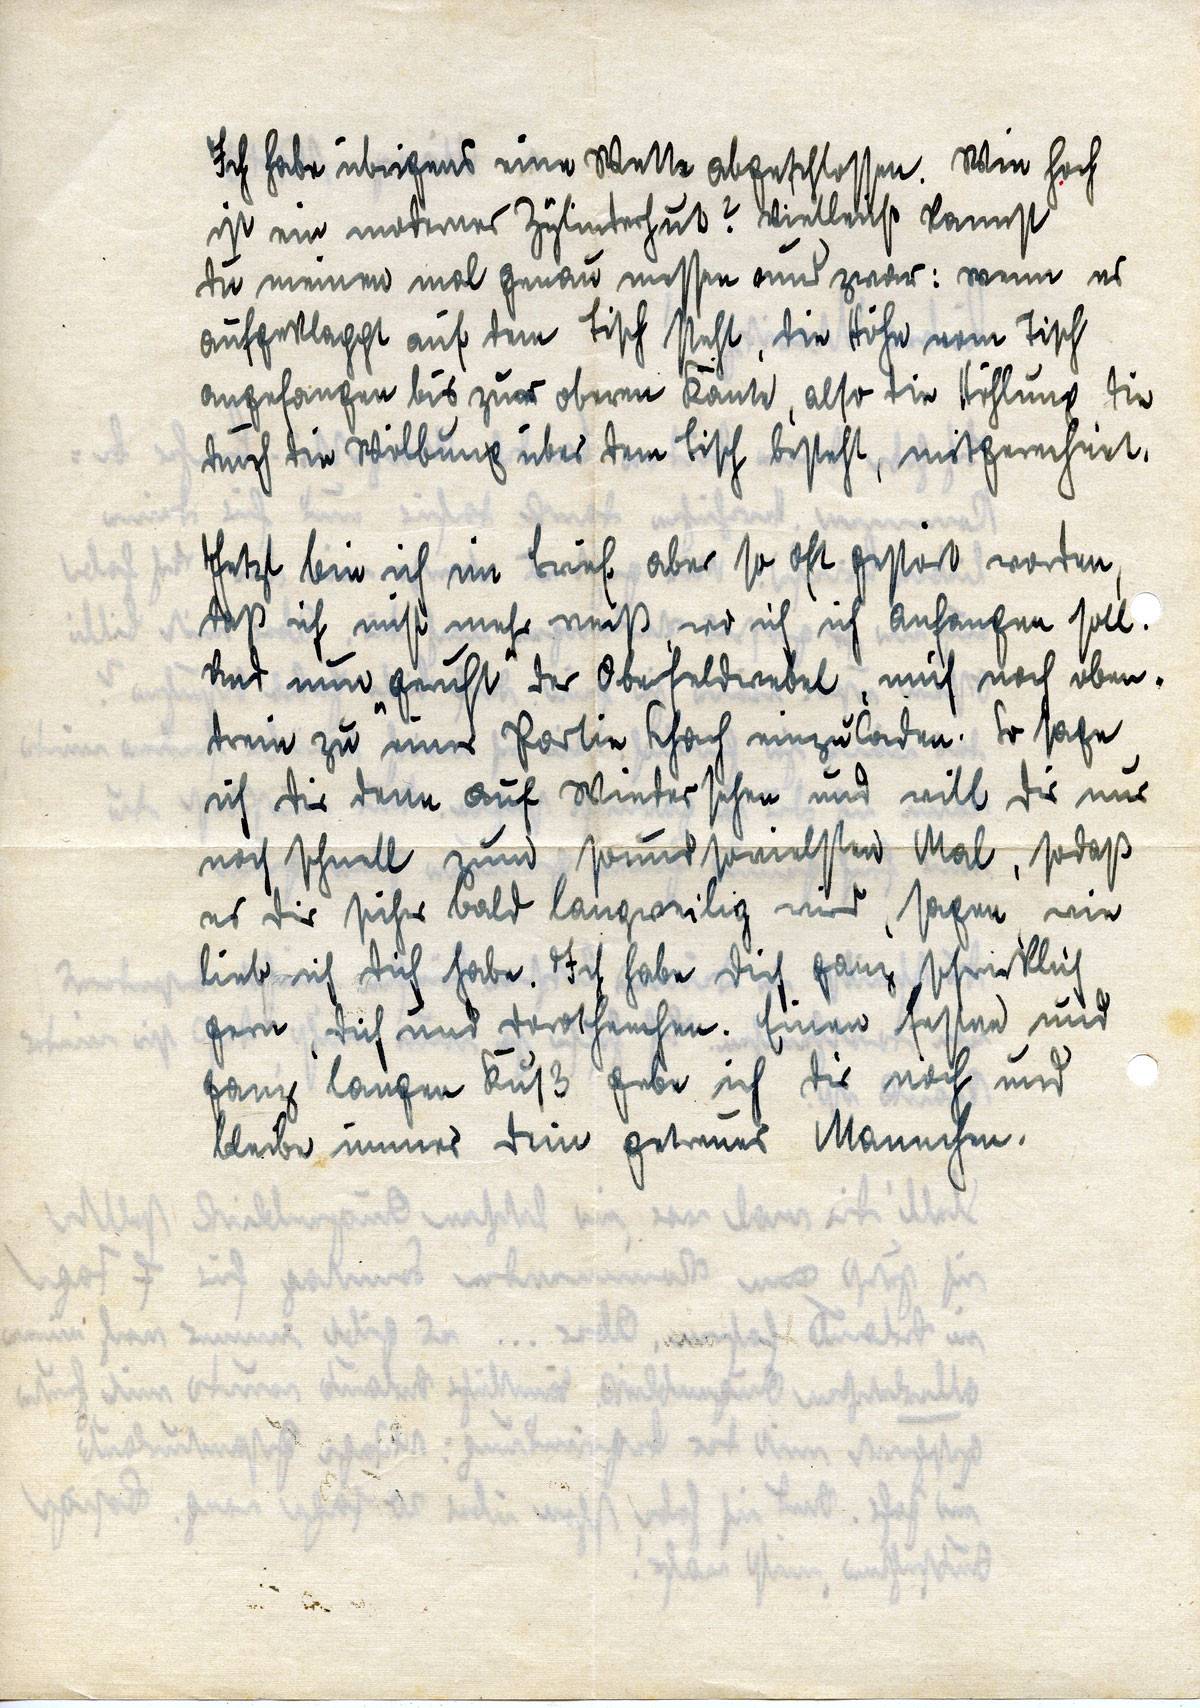 Ich habe übrigens eine Wette abgeschlossen. Wie hoch
ist ein moderner Zylinderhut? Vielleicht kannst
du meinen mal genau messen und zwar: wenn er
aufgeklappt auf dem Tisch steht, die Höhe vom Tisch
angefangen bis zur oberen Kante, also die Höhlung die
durch die Wölbung über dem Tisch besteht, mitgerechnet.
Jetzt bin ich im Brief aber so oft gestört worden,
daß ich nicht mehr weiß, wo ich ich anfangen soll.
Und nun "geruht" der Oberfeldwebel, mich noch oben-
drein zu einer Partie Schach einzuladen. So sage
ich dir denn auf Wiedersehen und will dir nur
noch schnell zum soundsovielsten Mal, sodaß
es dir sicher bald langweilig wird, sagen, wie
lieb ich dich habe. Ich habe dich ganz schrecklich
gern, dich und Dorothenchen. Einen festen und
ganz langen Kuß gebe ich dir noch und
bleibe immer dein getreues Mannchen.